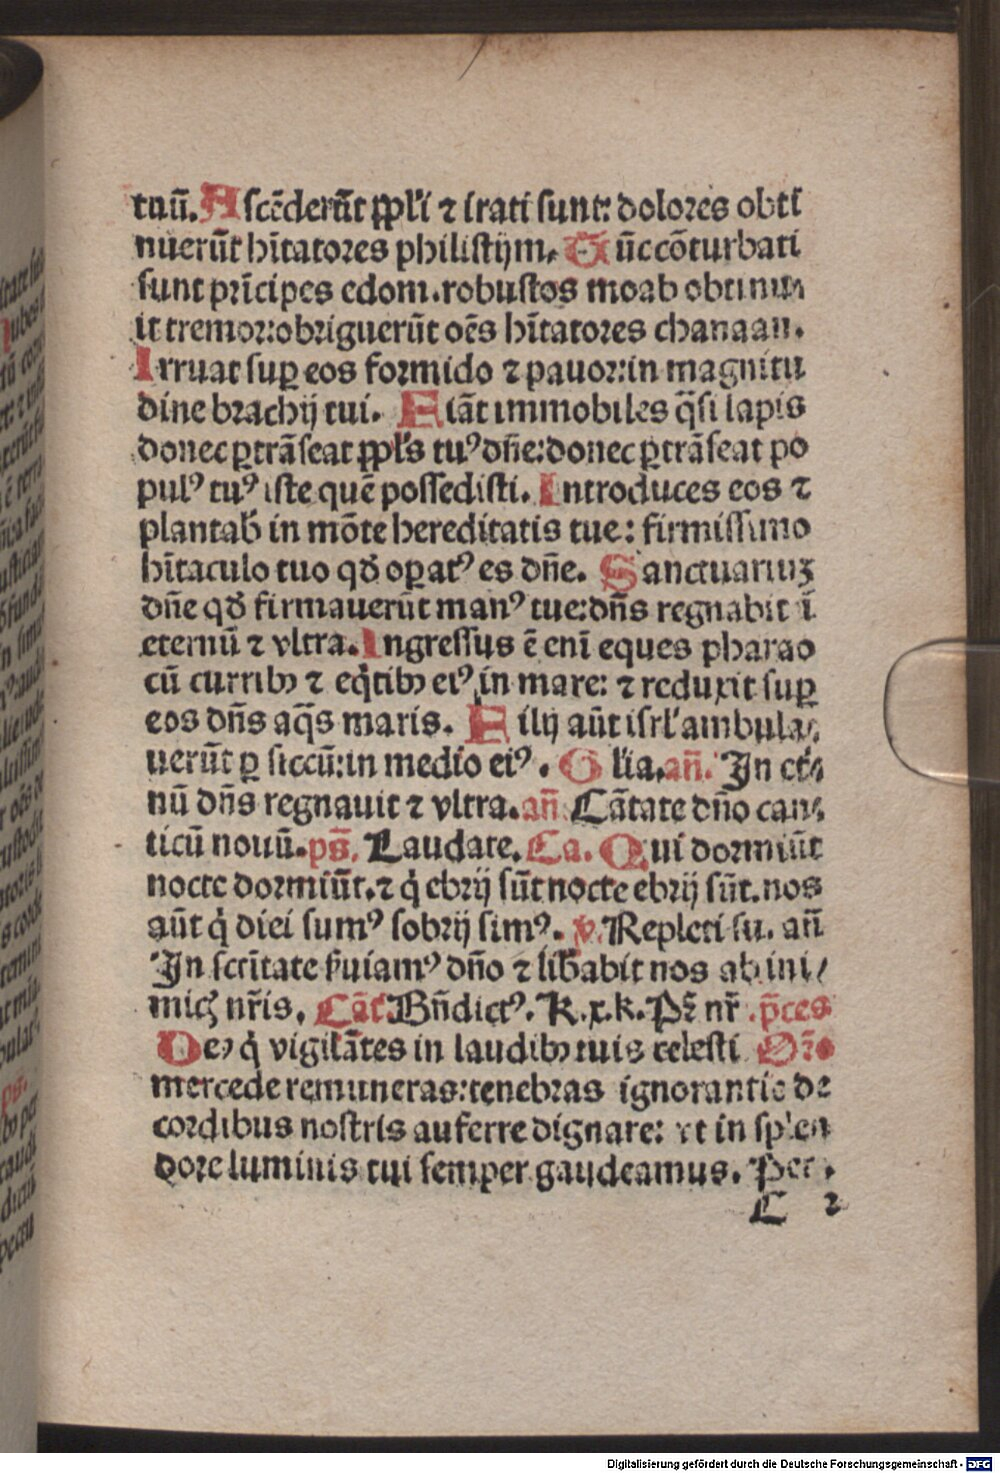 tuū. Ascēderūt ppl'i ⁊ irati sunt: dolores obti
nuerūt hītatores philistijm. Tūc cōturbati
sunt prīcipes edom. robustos moab obtinu⸗
it tremor: obriguerūt oēs hītatores chanaan.
Irruat suꝑ eos formido ⁊ pauor: in magnitu
dine brachij tui. Fiāt immobiles q̄si lapis
donec ꝑtrāseat ppl's tuꝰ dn̄e: donec ꝑtrāseat po
pulꝰ tuꝰ iste quē possedisti. Introduces eos ⁊
plantab̄ in mōte hereditatis tue: firmissimo
hītaculo tuo qd̄ oꝑatꝰ es dn̄e. Sanctuariuꝫ
dn̄e qd̄ firmauerūt manꝰ tue: dn̄s regnabit ī
eternū ⁊ vltra. Ingressus ē enī eques pharao
cū curribꝰ ⁊ eq̄tibꝰ eiꝰ in mare: ⁊ reduxit suꝑ
eos dn̄s aq̄s maris. Filij aūt isrl' ambula⸗
uerūt ꝑ siccū: in medio eiꝰ. Gl'ia. an̄. In et̄⸗
nū dn̄s regnauit ⁊ vltra. an̄ Cātate dn̄o can⸗
ticū nouū. ps̄. Laudate. Ca. Qui dormiūt
nocte dormiūt. ⁊ q̇ ebrij sūt nocte ebrij sūt. nos
aūt q̇ diei sumꝰ sobrij simꝰ. v. Repleti su. an̄
In scītate ẜuiamꝰ dn̄o ⁊ lib̄abit nos ab ini⸗
micꝭ nr̄is. Cāt Bn̄dictꝰ. K. x. k. Pr̄ nr̄. p̄ces
Deꝰ q̇ vigilātes in laudibꝰ tuis celesti Or̄o
mercede remuneras: tenebras ignorantie de
cordibus nostris auferre dignare: vt in splen
dore luminis tui semper gaudeamus. Per.
C 2
Digitalisierung gefördert durch die Deutsche Forschungsgemeinschaft - DFG